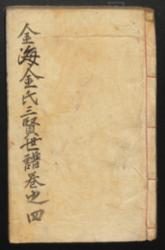 金海金氏三賢世譜卷之四